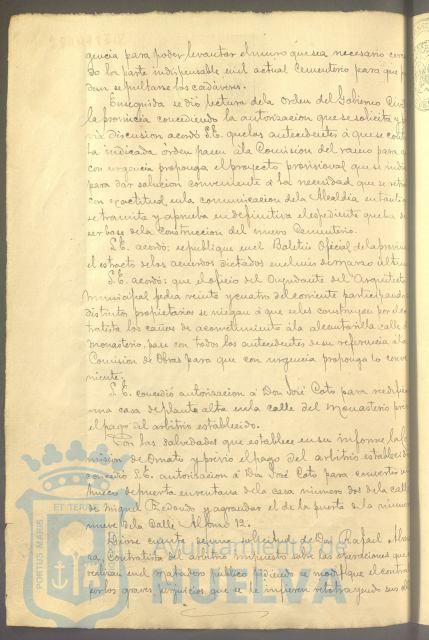 gencia para poder levantar el muro que sea necesario cercan
do la parte indispensable en el actual Cementerio para que p
dan sepultarse los cadáveres.
Enseguida se dió lectura de la orden del Gobierno Civil
la provincia concediendo la autorizacion que se solicita y
via discusion acordó S.E. que los antecedentes á que se con
ta indicada órden pasen á la Comision del ramo para q
con urgencia proponga el proyecto provisional que se indi
para dar solucion conveniente á la necesidad que se re
con exactitud en la comunicacion de la Alcaldia en tanto
se tramita y aprueba en definitiva el espediente que ha de
ser base de la construccion del nuevo Cementerio.
S.E. acordó: se publique en el Boletin Oficial de la provin
el estracto de los acuerdos dictados en el mes de marzo último
S.E. acordó: que el oficio del Ayudante del Arquitecto
Municipal fecha veinte y cuatro del corriente participando
distintos propietarios se niegan á que se les construyan por el con
tratista los caños de acometimiento á la alcantarilla calle d
Monasterio, pase con todos los antecedentes de su referencia á la
Comision de Obras para que con urgencia proponga lo conve
niente.
S.E. concedió autorizacion á Don José Coto para reedific
una casa de planta alta en la calle del Monasterio prev
el pago del arbitrio establecido.
Con las salvedades que establece en su informe la Co
mision de Ornato y previo el pago del arbitrio establecido
concedió S.E. autorizacion á Don José Coto para convertir un
hueco de puerta en ventana de la casa número dos de la calle
de Miguel Redondo y agrandar el de la puerta de la número
nueve de la Calle Alfonso 12.
Dióse cuenta de una solicitud de Don Rafael
Contratista del arbitrio impuesto sobre las operaciones que
realizan en el matadero público pidiendo se modifique el contra
por los graves perjuicios que se le infieren
ET TERRA
PORTUS MARIS
Ayuntamiento de
HUELVA